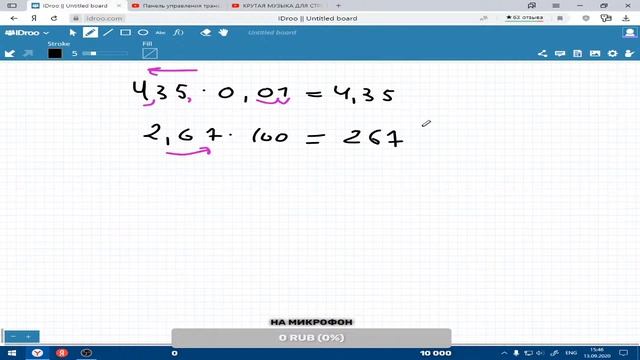 IDroo || Untitled board
Панель управления тран
КРУТАЯ МУЗЫКА ДЛЯ СТР
idroo.com
IDroo || Untitled board
★ 62 отзыва
IDroo
Stroke
5
Fill
Untitled board
4,35 · 0,01 = 4,35
2,67 · 100 = 267
НА МИКРОФОН
0 RUB (0%)
0
10 000
15:46
13.09.2020